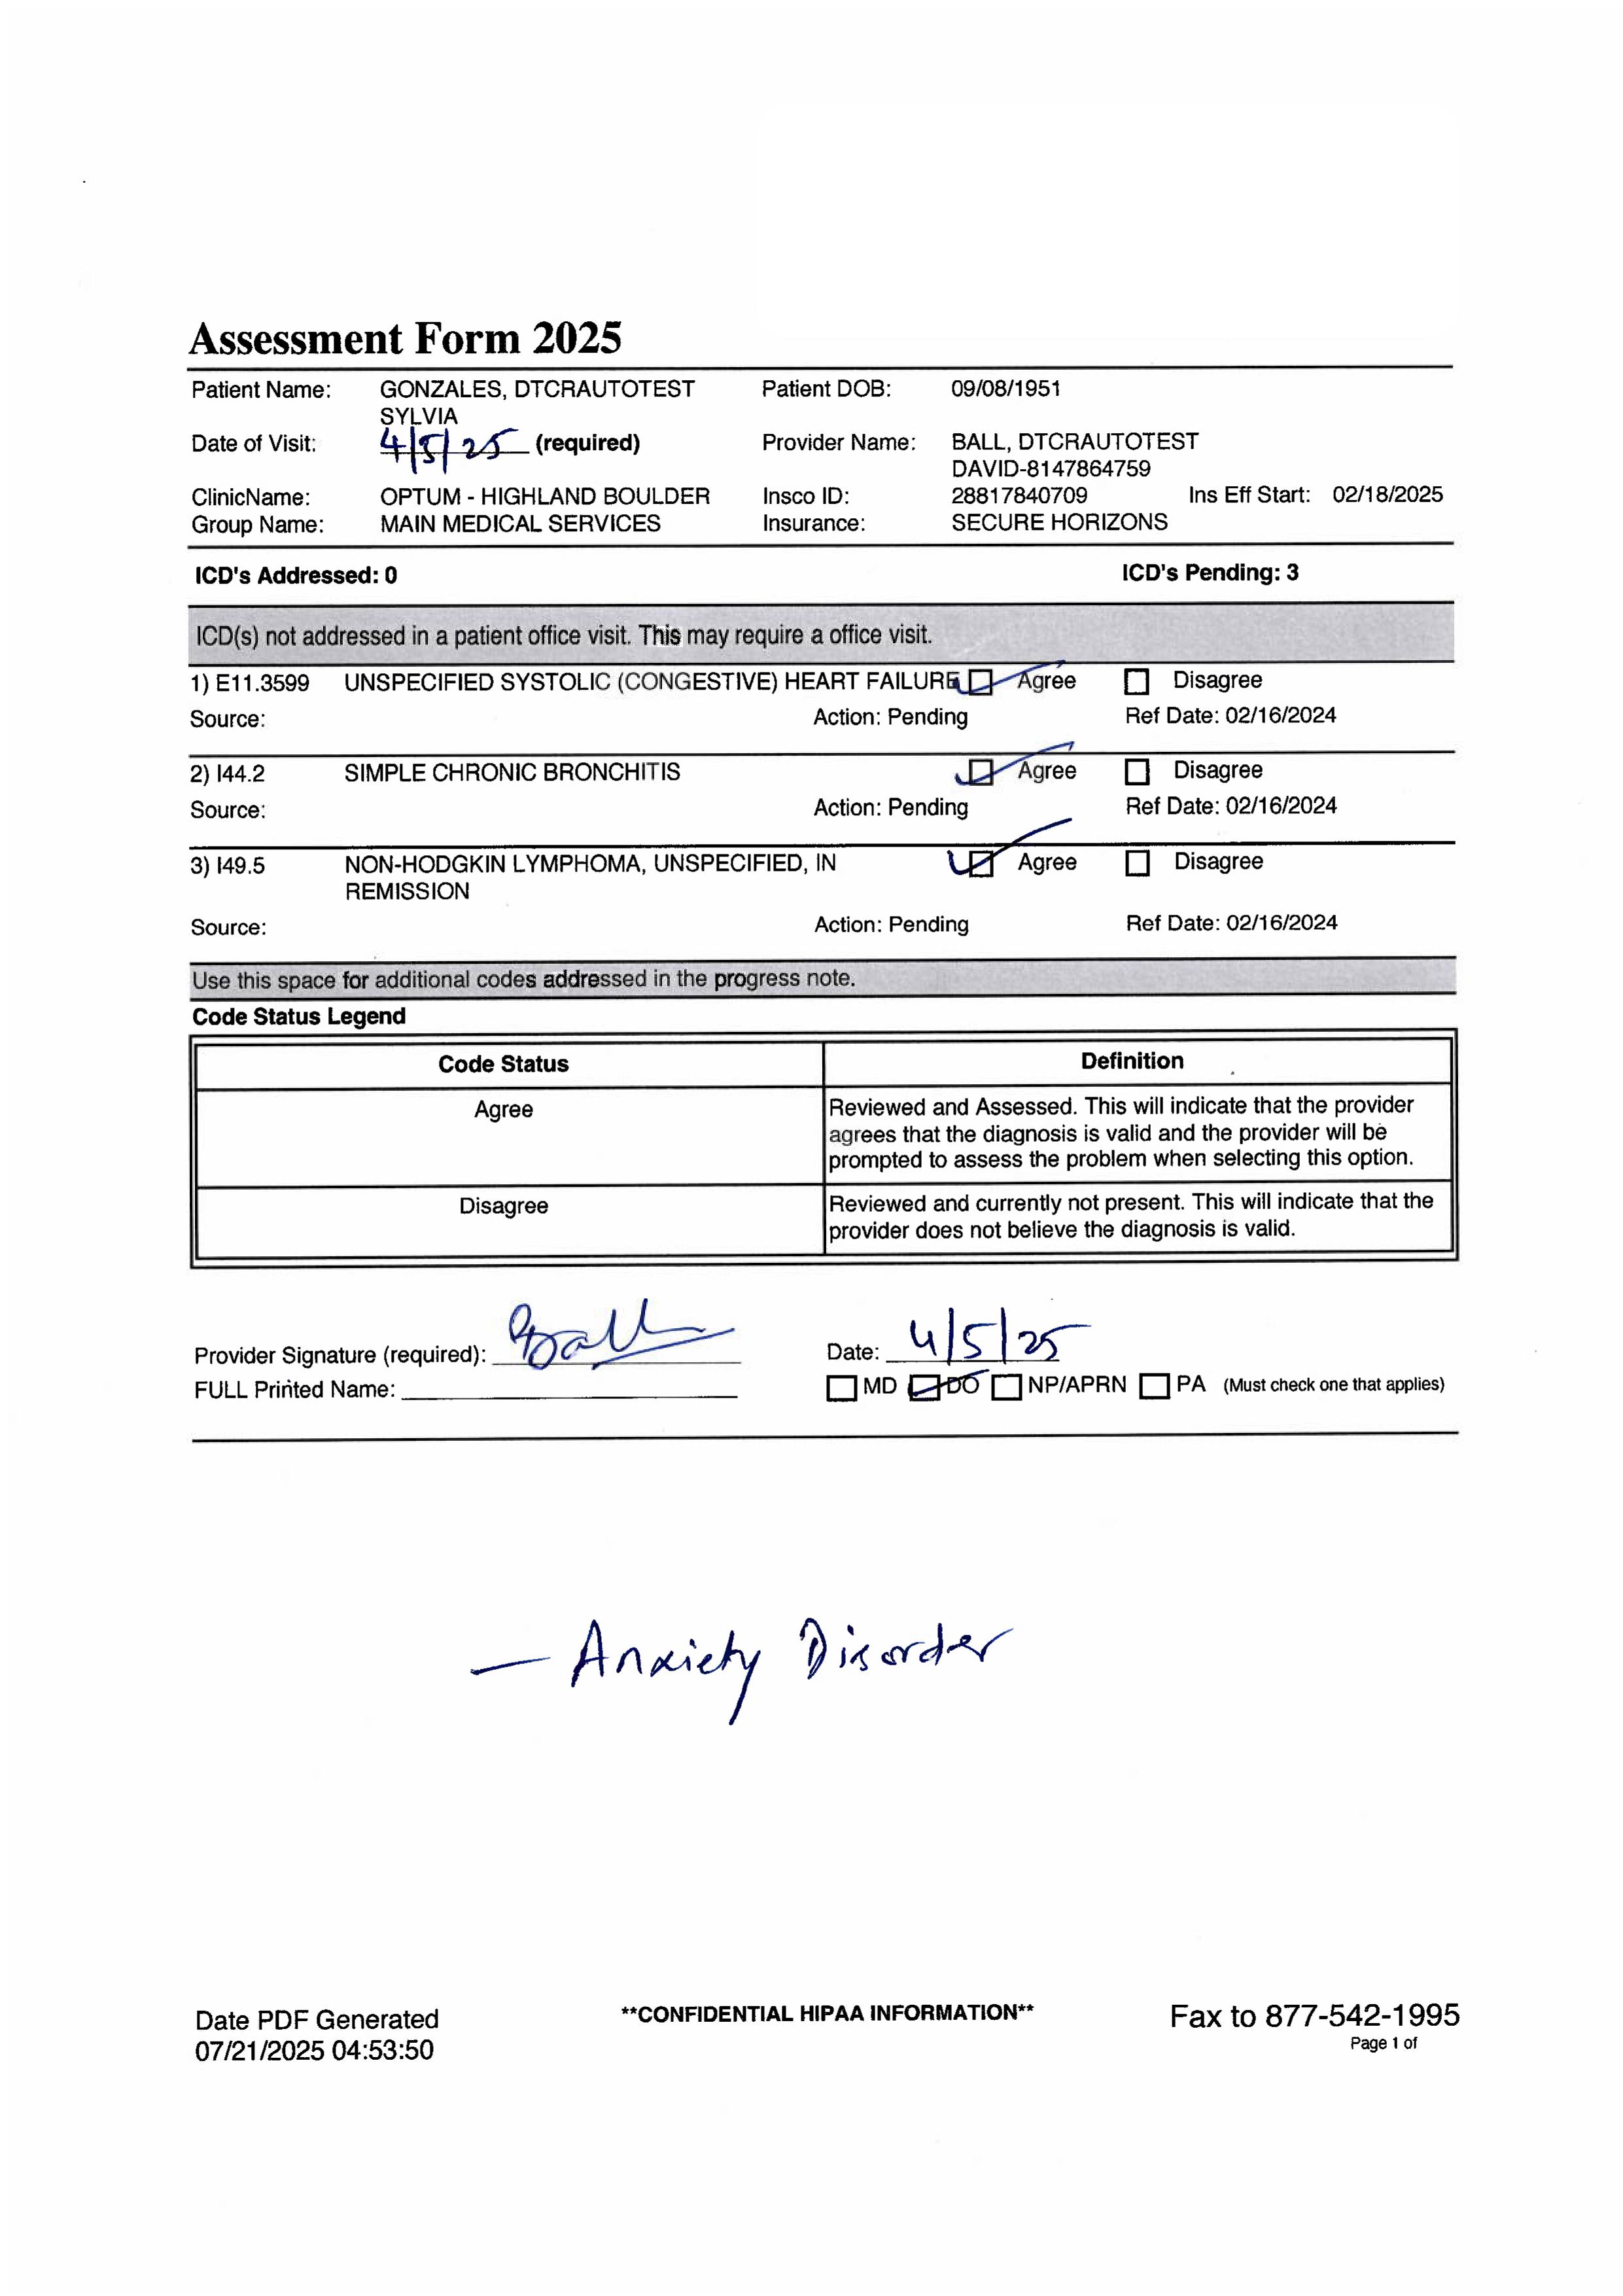 Assessment Form 2025
Patient Name: GONZALES, DTCRAUTOTEST Patient DOB: 09/08/1951
SYLVIA
Date of Visit: 4/5/25 (required) Provider Name: BALL, DTCRAUTOTEST
DAVID-8147864759
ClinicName: OPTUM - HIGHLAND BOULDER Insco ID: 28817840709 Ins Eff Start: 02/18/2025
Group Name: MAIN MEDICAL SERVICES Insurance: SECURE HORIZONS
ICD's Addressed: 0 ICD's Pending: 3
ICD(s) not addressed in a patient office visit. This may require a office visit.
1) E11.3599 UNSPECIFIED SYSTOLIC (CONGESTIVE) HEART FAILURE Agree Disagree
Source: Action: Pending Ref Date: 02/16/2024
2) I44.2 SIMPLE CHRONIC BRONCHITIS Agree Disagree
Source: Action: Pending Ref Date: 02/16/2024
3) I49.5 NON-HODGKIN LYMPHOMA, UNSPECIFIED, IN Agree Disagree
REMISSION
Source: Action: Pending Ref Date: 02/16/2024
Use this space for additional codes addressed in the progress note.
Code Status Legend
Code Status Definition
Agree Reviewed and Assessed. This will indicate that the provider
agrees that the diagnosis is valid and the provider will be
prompted to assess the problem when selecting this option.
Disagree Reviewed and currently not present. This will indicate that the
provider does not believe the diagnosis is valid.
Provider Signature (required): Ball Date: 4/5/25
FULL Printed Name: MD DO NP/APRN PA (Must check one that applies)
— Anxiety Disorder
Date PDF Generated **CONFIDENTIAL HIPAA INFORMATION** Fax to 877-542-1995
07/21/2025 04:53:50 Page 1 of